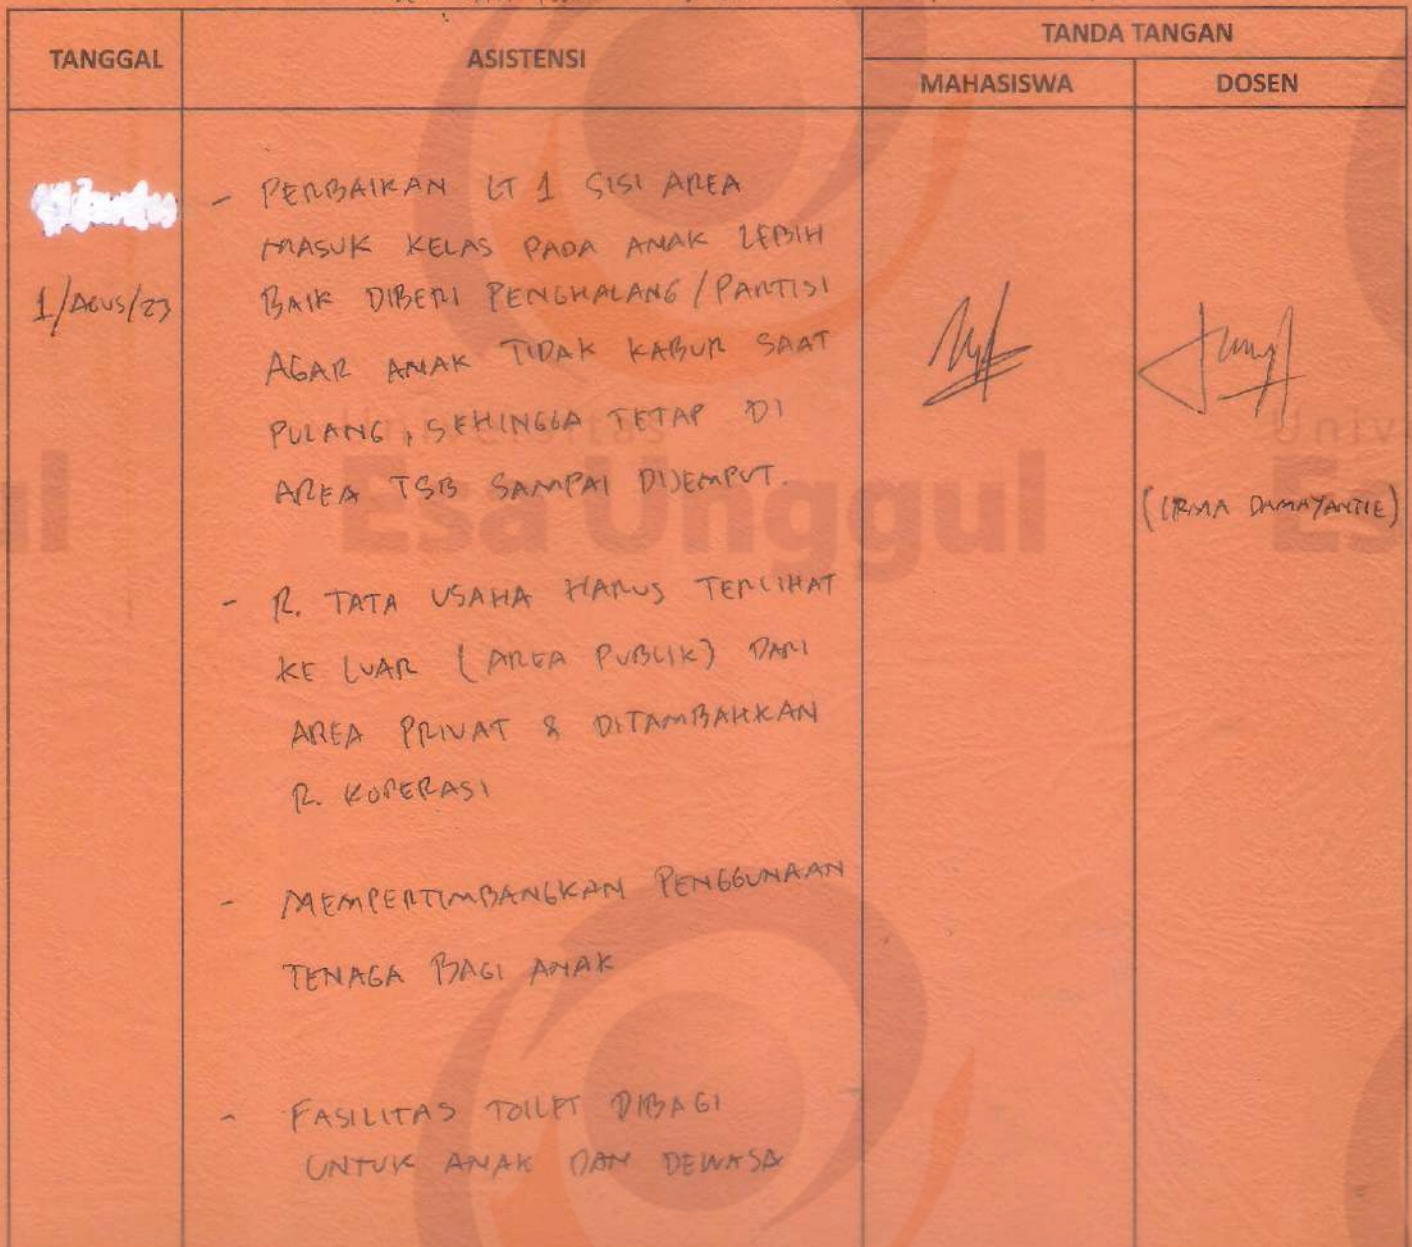 TANGGAL
ASISTENSI
TANDA TANGAN
MAHASISWA
DOSEN
1/AGUS/23
- PERBAIKAN LT 1 SISI AREA
MASUK KELAS PADA ANAK LEBIH
BAIK DIBERI PENGHALANG/PARTISI
AGAR ANAK TIDAK KABUR SAAT
PULANG, SEHINGGA TETAP DI
AREA TSB SAMPAI DIJEMPUT.
(IRMA DAMAYANTIE)
- R. TATA USAHA HARUS TERLIHAT
KE LUAR (AREA PUBLIK) DARI
AREA PRIVAT & DITAMBAHKAN
R. KOPERASI
- MEMPERTIMBANGKAN PENGGUNAAN
TENAGA BAGI ANAK
- FASILITAS TOILET DIBAGI
UNTUK ANAK DAN DEWASA
Universitas
Esa Unggul
Univ
Es
ul